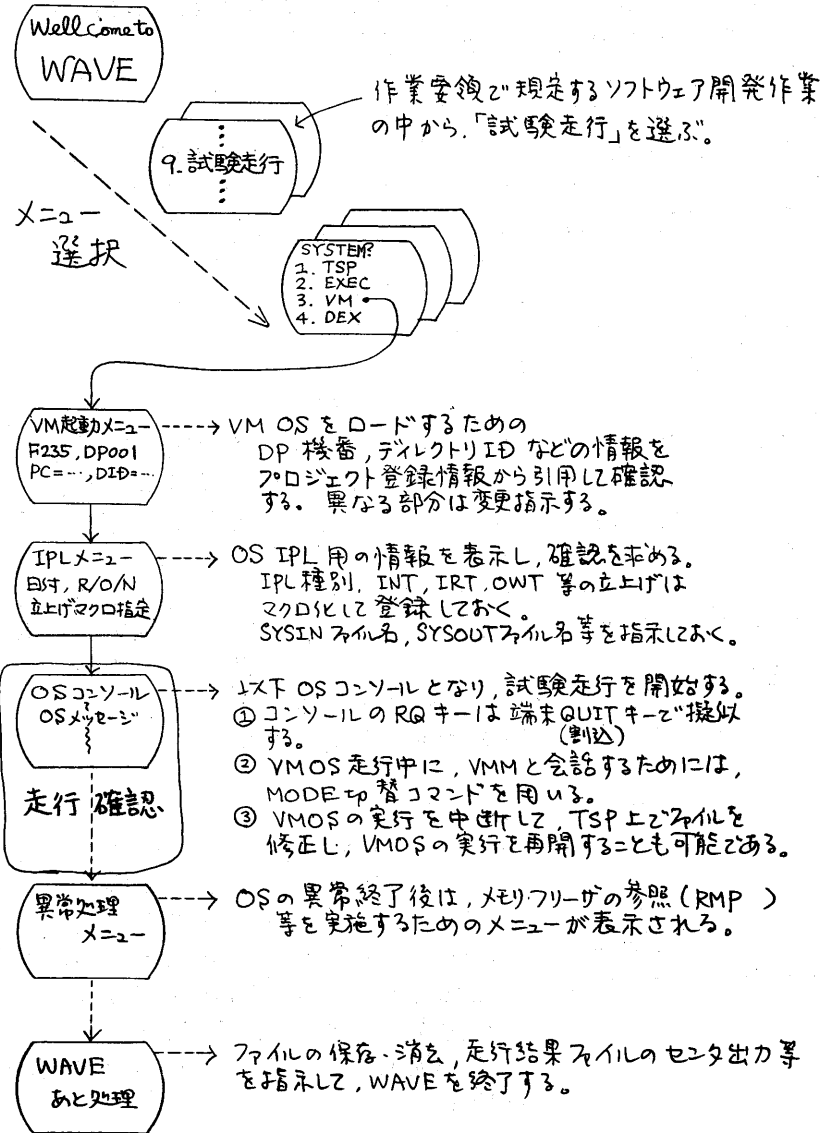 Wellcome to
WAVE
作業要領で規定するソフトウェア開発作業
の中から、「試験走行」を選ぶ。
9. 試験走行
メニュー
選択
SYSTEM?
1. TSP
2. EXEC
3. VM
4. DEX
VM起動メニュー
F235, DP001
PC=…, DID=…
VM OS をロードするための
DP 機番, ディレクトリID などの情報を
プロジェクト登録情報から引用して確認
する。異なる部分は変更指示する。
IPLメニュー
日付, R/O/N
立上げマクロ指定
OS IPL 用の情報を表示し, 確認を求める。
IPL種別, INT, IRT, OWT 等の立上げは
マクロ化して登録しておく。
SYSIN ファイル名, SYSOUTファイル名等を指示しておく。
OSコンソール
OSメッセージ
走行確認
以下 OSコンソールとなり, 試験走行を開始する。
① コンソールのRQキーは端末QUITキーで擬似
(割込)
する。
② VMOS走行中に, VMMと会話するためには,
MODE切替コマンドを用いる。
③ VMOSの実行を中断して, TSP上でファイルを
修正し, VMOSの実行を再開することも可能である。
異常処理
メニュー
OSの異常終了後は, メモリ・フリーザの参照 (RMP )
等を実施するためのメニューが表示される。
WAVE
あと処理
ファイルの保存・消去, 走行結果ファイルのセンタ出力等
を指示して, WAVEを終了する。